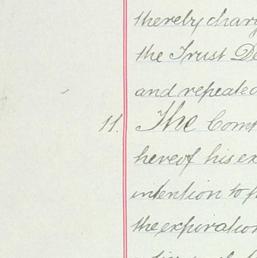 thereby charg
the Trust De
and repeated
11. The Com
hereof his ex
intention to
the expiration